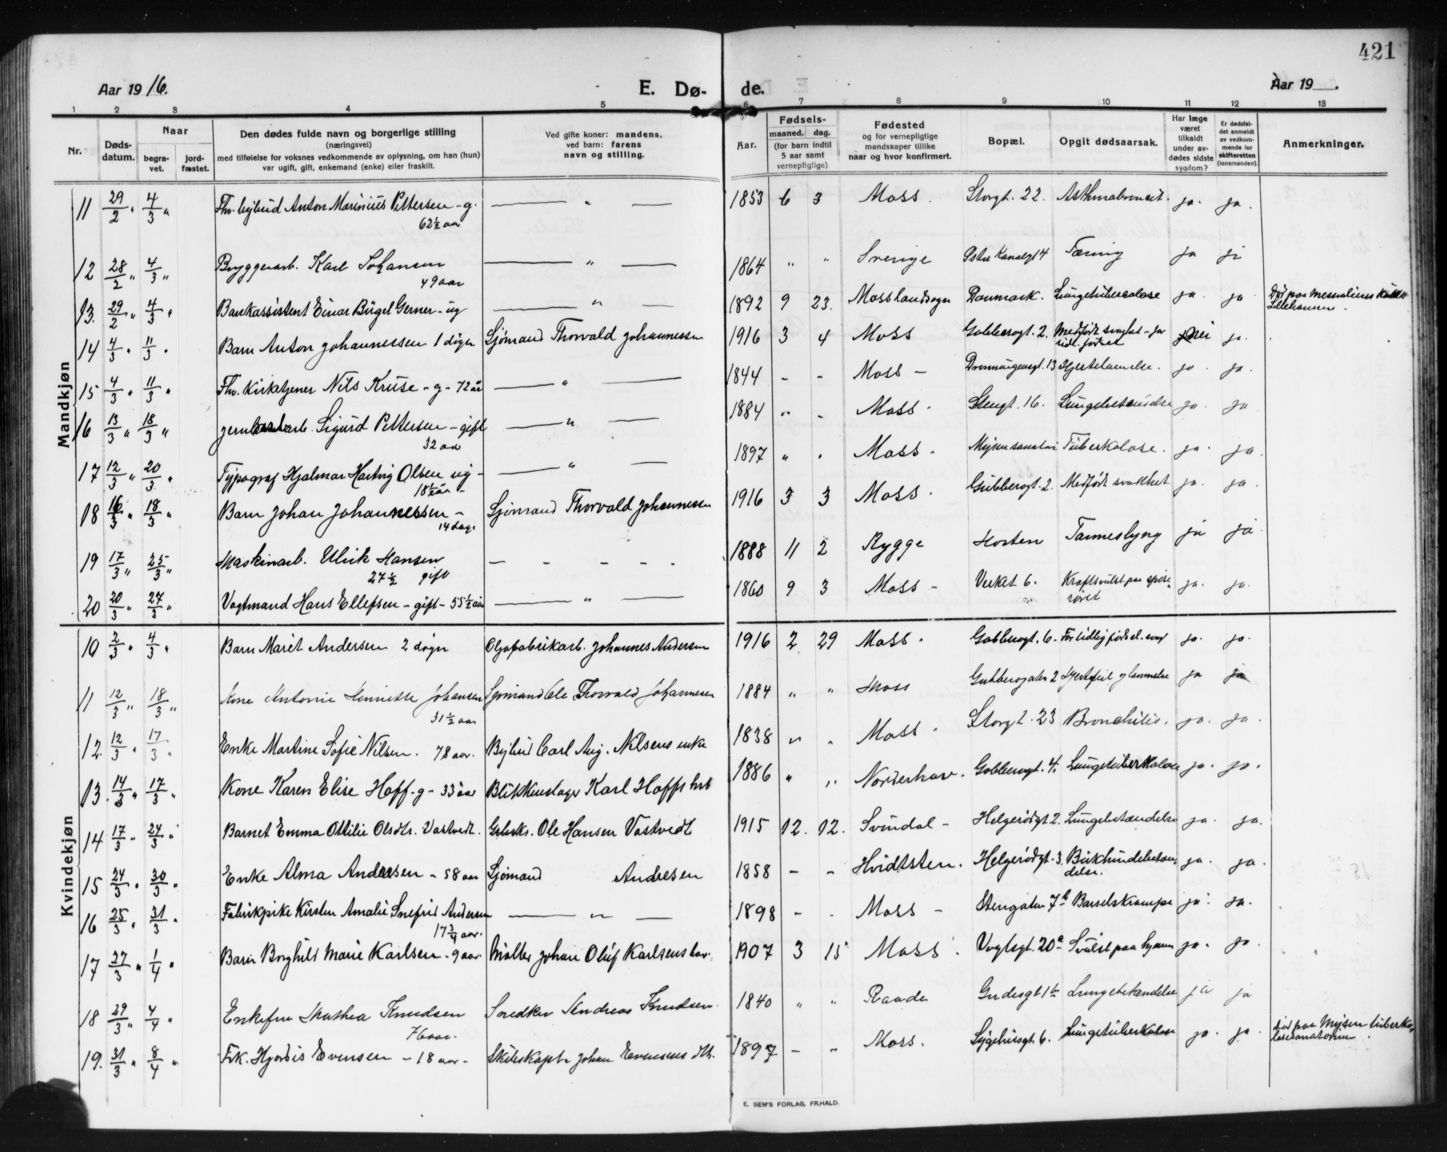 421
Aar 1916.
E. Dø-
de.
Aar 19 .
1 2 3 4 5 6 7 8 9 10 11 12 13
Nr.
Døds-datum.
Naar
begra-vet.
jord-fæstet.
Den dødes fulde navn og borgerlige stilling
(næringsvei)
med tilføielse for voksnes vedkommende av oplysning, om han (hun)
var ugift, gift, enkemand (enke) eller fraskilt.
Ved gifte koner: mandens,
ved barn: farens
navn og stilling.
Aar.
Fødsels-
maaned. dag.
(for barn indtil
5 aar samt
vernepligtige)
Fødested
og for vernepligtige
mandskaper tillike
naar og hvor konfirmert.
Bopæl.
Opgit dødsaarsak.
Har læge
været
tilkaldt
under av-
dødes sidste
sygdom?
Er dødsfal-
det anmeldt
av vedkom-
mende for
skifteretten
(lensmanden).
Anmerkninger.
Mandkjøn
11 29/2 " 4/3 " Anton Marinius Pettersen - g. 62½ aar — " — 1853 6 3 Moss. Storgt. 22. ja. ja.
12 28/2 " 4/3 " Bryggerarb. Karl Johansen 49 aar — " — 1864 " " Sverige Østre Kanalgt 4 Tæring ja ja
13. 29/2 " 4/3 " Bankassistent Einar Birger Gerner - ug — " — 1892 9 23. Mosslandsogn Danmark. Lungetuberkulose ja. ja
14 4/3 " 11/3 " Barn Anton Johannessen 1 døgn Sjømand Thorvald Johannessen 1916 3 4 Moss Gubberogt. 2. Medfødt svaghet - for tidl. født nei ja.
15 4/3 " 11/3 " Fhv. Kirketjener Nils Kruse - g - 72 år — " — 1844 - - Moss - Dronningensgt. 13 Hjertelammelse. ja ja.
16 13/3 " 18/3 " Sigurd Pettersen - gift 32 aar — " — 1884 " - Moss. Stengt. 16. Lungebetændelse ja. ja
17 12/3 " 20/3 " Typograf Hjalmar Hartvig Olsen ug - 18½ år — " — 1897 " . Moss. Tuberkulose. ja. ja.
18 16/3 " 18/3 " Barn Johan Johannessen - 14 dage Sjømand Thorvald Johannessen 1916 3 3 Moss. Gubberogt. 2. Medfødt svakhet ja. ja
19 17/3 " 25/3 " Maskinarb. Ulrik Hansen 27½ gift - - - - 1888 11 2 Rygge Horten ja ja
20 20/3 " 27/3 " Vagtmand Hans Ellefsen - gift - 55½ aar — " — 1860 9 3 Moss - Verket 6. Kræftsvulst paa spiserøret ja. ja.
Kvindekjøn
10 2/3 " 4/3 " Barn Marit Andersen 2 døgn Oljefabrikarb. Johannes Andersen 1916 2 29 Moss. Gubberogt. 6. For tidlig fødsel. ja. ja.
11 12/3 " 18/3 " Kone Antonie Johansen 31½ aar Sjømand Ole Thorvald Johannesen 1884 " " Moss Gubberogaten 2 ja ja
12. 12/3 " 17/3 " Enke Martine Sofie Nilsen. 78 aar. Carl Aug. Nilsens enke 1838 " " Moss. Storgt. 23 Bronchitis. ja. ja.
13. 14/3 " 17/3 " Kone Karen Elise Hoff - g - 33 aar Blikkenslager Karl Hoffs hst 1886 " " Norderhov. Gubberogt. 4. Lungetuberkulose ja. ja.
14 17/3 - 24/3 " Barnet Emma Ottilie Olsdtr. Vastvedt. Ole Hansen Vastvedt 1915 12. 12. Svindal - Helgerødgt 2. Lungebetændelse ja. ja.
15 24/3 " 30/3 " Enke Alma Andersen - 58 aar Sjømand Andresen 1858 - - Hvidtsten. Helgerødgt. 3. Bukhindebetændelse. ja. ja.
16 25/3 " 31/3 " Fabrikpike Kirsten Amalie Snefrid Andersen 17¾ aar. — " — 1898 - - Moss - Stengaten 7 b Barselskrampe ja. ja.
17 27/3 " 1/4 " Barn Borghild Marie Karlsen - 9 aar Møller Johan Oluf Karlsens barn 1907 3 15 Moss. Vogtsgt. 20 a Svulst paa hjernen ja. ja
18 29/3 " 4/4 " Enkefru Mathea Knudsen 76 aar. Andreas Knudsen. 1840 " " Raade Lungebetændelse ja ja
19. 31/3 " 8/4 " Frk. Hjørdis Evensen - 18 aar - Skibskapt. Johan Evensens dtr. 1897 - - Moss. Sygehusgt. 6. Lungetuberkulose ja. ja. død paa Mysen tuberkulosesanatorium
E. SEM'S FORLAG, FR.HALD.